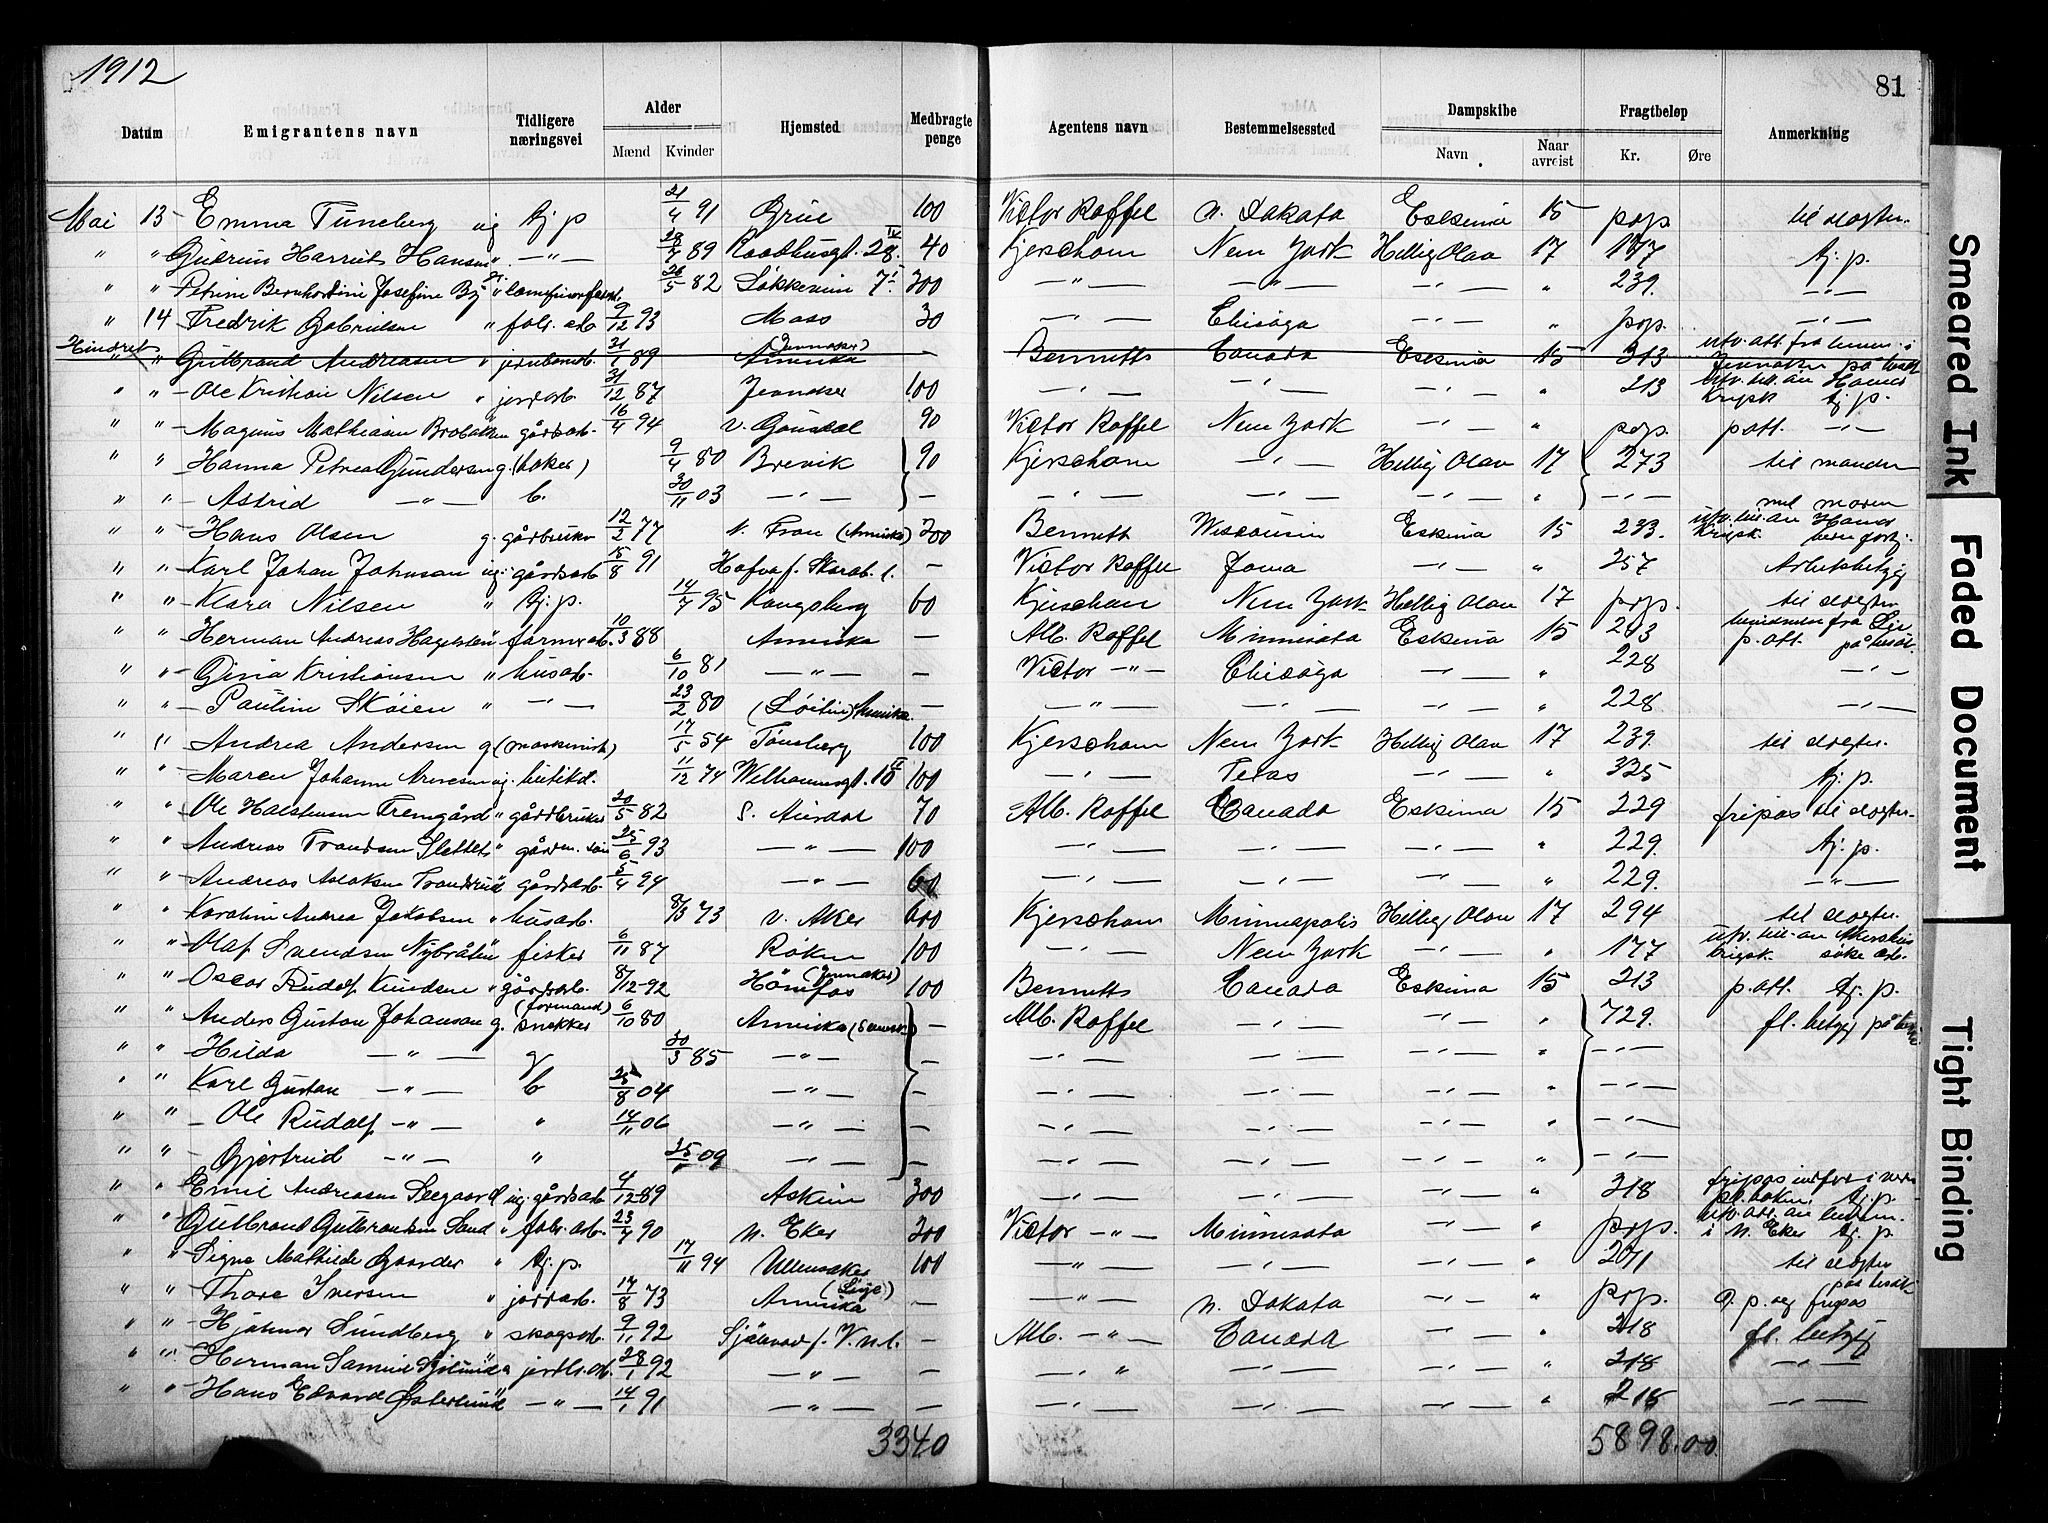 1912
81
Datum | Emigrantens navn | Tidligere næringsvei | Alder Mænd Kvinder | Hjemsted | Medbragte penge | Agentens navn | Bestemmelsessted | Dampskibe Navn Naar avreist | Fragtbeløp Kr. Øre | Anmerkning
Mai 13 Emma Tuneberg ug tj. p 21/4 91 Grue 100 Victor Roffel N. Dakota Eskimo 15 pop. til slegter.
" " Gudrun Harriet Hansen " —"— 89 Raadhusgt. 28 IV 40 Kjerschow New York Hellig Olav 17 177 tj. p.
" " Petrine Bernhardine Josefine By " 26/5 82 Løkkeveien 7 I 300 —"— —"— —"— " 239. —"—
" 14 Fredrik Gabrielsen " fabr. arb 9/12 93 Moss 30 —"— Chicago —"— " pop. —"—
Hindret " Gulbrand Andreassen " jernbanearb. 21/1 89 Amerika (Jevnaker) — Bennetts Canada Eskimo 15 213 utv. att. fra lensm. i Jevnaker på besøk
" " Ole Kristian Nilsen " jordarb. 31/12 87 Jevnaker 100 —"— —"— —"— " 213 utv. till. av Hamar krigsk. tj. p.
" " Magnus Mathiasen Brobakken gårdsarb. 16/4 94 V. Gausdal 90 Victor Roffel New York —"— " pop. p att. —"—
" " Hanna Petrea Gundersen g. (baker) 9/4 80 Brevik 90 Kjerschow —"— Hellig Olav 17 273 til manden
" " Astrid —"— b. 30/11 03 —"— — —"— —"— —"— " —"— med moren
" " Hans Olsen g. gårdbruker 12/2 77 N. Fron (Amerika) 200 Bennett Wisconsin Eskimo 15 233. utv. till. av Hamar krigsk.
" " Karl Johan Johnsson ug. gårdsarb 15/8 91 Hofva f. Skarab. l. Victor Roffel Iowa —"— " 257 Arbeidsbetyg
" " Klara Nilsen " tj. p. 14/7 95 Kongsberg 60 Kjerschow New York Hellig Olav 17 pop. til slegter
" " Herman Andreas Hagelsteen farmerarb. 10/3 88 Amerika — Alb. Roffel Minnesota Eskimo 15 213 p. att. på besøk
" " Gina Kristiansen " husarb. 6/10 81 —"— — Victor —"— Chicago —"— " 228 —"—
" " Pauline Skøien " —"— 23/2 80 (Løiten) Amerika. — —"— —"— —"— " 228 —"—
" " Andrea Andersen g (maskinist) 17/5 54 Tønsberg 100 Kjerschow New York Hellig Olav 17 239. til slegter.
" " Maren Johanne Arnesen ug. butikd. 11/12 74 Welhavensgt. 10 II 100 —"— Texas —"— " 335 tj. p.
" " Ole Halstensen Fremgård " gårdbruker 20/5 82 S. Aurdal 70 Alb. Roffel Canada Eskimo 15 229 fripas til slegter.
" " Andreas Trondsen Slettet " gårdm. søn 25/6 93 —"— 100 —"— —"— —"— " 229. tj. p.
" " Andreas Aslaksen Trondrud " gårdsarb. 5/4 94 —"— 60 —"— —"— —"— " 229. —"—
" " Karoline Andrea Jakobsen " husarb. 8/3 73 V. Aker 600 Kjerschow Minneapolis Hellig Olav 17 294 til slegter.
" " Olaf Svendsen Nybråten fisker 6/11 87 Røken 100 —"— New York —"— " 177 utv. till. av Akershus krigsk. søke arb.
" " Oscar Rudolf Knudsen " gårdsarb. 8/12 92 Hönefos (Jevnaker) 100 Bennetts Canada Eskimo 15 213 p. att. tj. p.
" " Anders Gustav Johansson g. snekker (formand) 6/10 80 Amerika — Alb. Roffel —"— —"— " 729. fl. betyg på
" " Hilda —"— g 30/3 85 —"— — —"— —"— —"— " —"—
" " Karl Gustav —"— b 25/8 04 —"— — —"— —"— —"— " —"—
" " Ole Rudolf —"— " 14/11 06 —"— — —"— —"— —"— " —"—
" " Gjertrud —"— " 25/1 09 —"— — —"— —"— —"— " —"—
" " Emil Andreasen Seegaard ug. gårdsarb 4/12 89 Askim 300 —"— —"— —"— " 218 fripas tj. p.
" " Gulbrand Gulbrandsen Sand " fabr. arb. 23/4 90 N. Eker 200 Victor —"— Minnesota —"— " pop. utv. att. av lensm. i N. Eker tj. p.
" " Signe Mathilde Gaarder " tj. p. 17/11 94 Ullensaker 100 —"— —"— —"— " 271 til slegter
" " Thore Iversen " jordarb. 17/8 73 Amerika — —"— N. Dakota —"— " pop. p. og fripas paa besøk
" " Hjalmar Sundberg " skogsarb. 9/11 92 Själevad f. V. n. l. — Alb. —"— Canada —"— " 218 fl. betyg
" " Herman Samuel " jordbr. arb. 28/1 92 —"— — —"— —"— —"— " 218 —"—
" " Hans Edvard Østerlund —"— 14/1 91 —"— — —"— —"— —"— " 218 —"—
3340
5898.00
Smeared Ink
Faded Document
Tight Binding